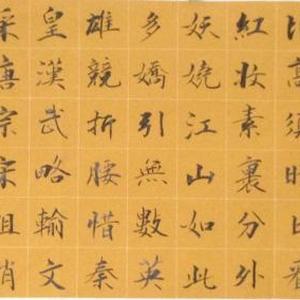 比高須晴日看
紅妝素裹分外
妖嬈江山如此
多嬌引無數英
雄競折腰惜秦
皇漢武略輸文
采唐宗宋祖稍